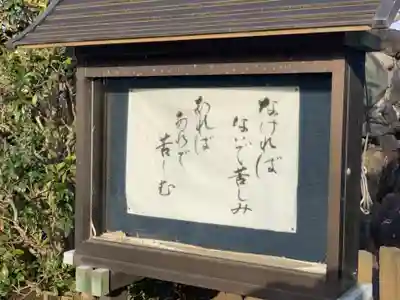 なければ
ないで苦しみ
あれば
あるで
苦しむ